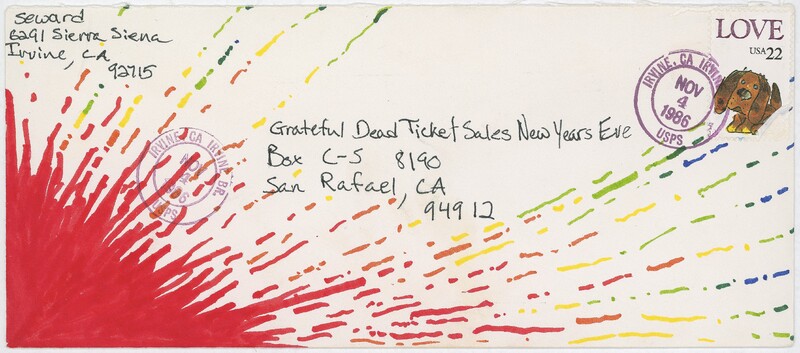 Seward
6291 Sierra Siena
Irvine, CA
92715
LOVE
USA 22
IRVINE, CA IRVINE
NOV
4
1986
USPS
Grateful Dead Ticket Sales New Years Eve
Box C-S 8190
San Rafael, CA
94912
IRVINE, CA IRVINE BR.
NOV
USPS